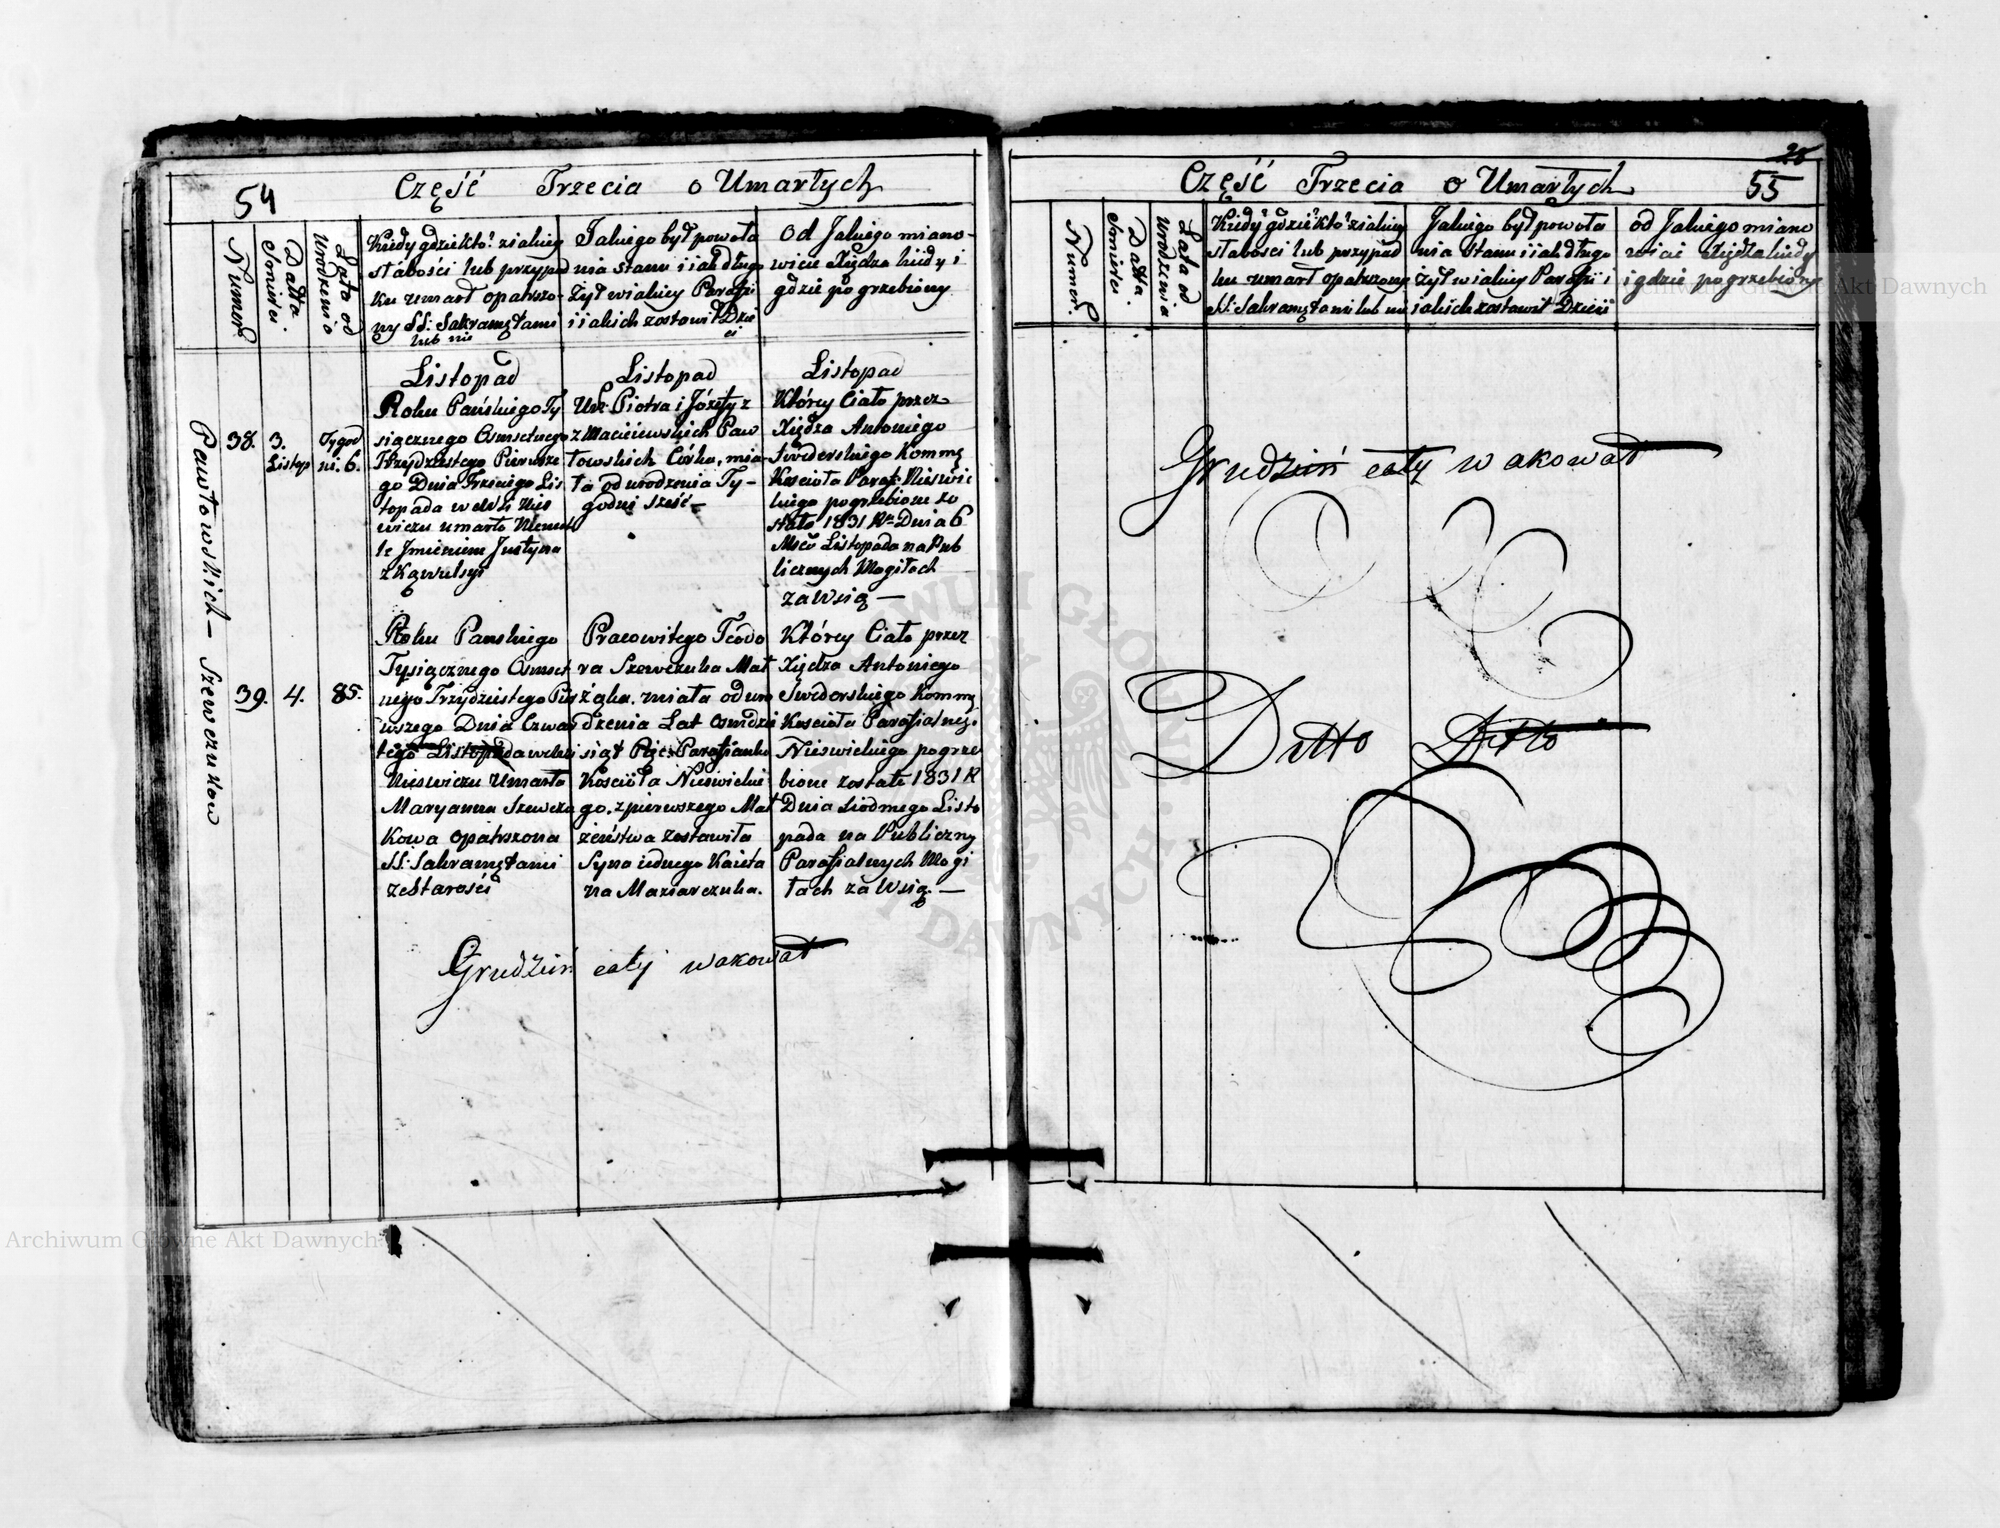 54
Część Trzecia o Umarłych
Numer.
Datta Smierci.
Lata od Urodzenia
Kiedy gdzie kto? z iakiey
słabości lub przypad
ku umarł opatrzo-
ny SS: Sakramętami
lub nie
Jakiego był powoła
nia stanu i iak długo
Żył w iakiey Parafii
i iakich zostawił Dzie
ci
Od Jakiego miano-
wicie Xiędza kiedy i
gdzie pogrzebiony
Pawłowskich — Szewczukow
38.
3.
Listop
Tygod
ni. 6.
Listopad
Roku Pańskiego Ty
siącznego Osmsetnego
Trzydziestego Pierwsze
go Dnia Trzeciego Lis
topada we Wsi Nies
wiczu umarło Niemow
le Jmieniem Justyna
z Kąwulsyi
Listopad
Ur: Piotra i Józefy z
z Maciiewskich Paw
łowskich Córka, mia-
ła od urodzenia Ty-
godni Sześć —
Listopad
Którey Ciało przez
Xiędza Antoniego
Swiderskiego Kommę
Kościoła Paraf: Nieswic
kiego pogrzebione zo
stało 1831 Ru Dnia 6
Msca Listopada na Pub
licznych Mogiłach
za Wsią —
39.
4.
85.
Roku Panskiego
Tysiącznego Osmset
nego Trzydziestego Pier
wszego Dnia Czwar
tego Listopada we Wsi
Nieswiczu Umarła
Maryanna Szewczu
kowa opatrzona
SS: Sakramętami
ze Starości
Pracowitego Teodo
ra Szewczuka Mał
żąka. miała od uro
dzenia Lat Osmdzie
siąt Pięć Parafianka
Kościoła Nieswickie
go. z pierwszego Mał
żeństwa zostawiła
Syna iednego Kaieta
na Maziarczuka.
Którey Ciało przez
Xiędza Antoniego
Swiderskiego Kommę
Kościoła Parafialneg.
Nieswickiego pogrze
bione zostało 1831 R
Dnia Siodmego Listo
pada na Publiczny
Parafialnych Mogi
łach za Wsią. —
Grudzień cały wakował
28
55
Część Trzecia o Umarłych
Numer.
Datta Smierci.
Lata od Urodzenia
Kiedy? gdzie? kto? z iakiey
słabości lub przypad
ku umarł opatrzony
SS: Sakramętami lub nie
Jakiego był powoła
nia Stanu i iak długo
żył w iakiey Parafii i
iakich zostawił Dzieci
od Jakiego miano
wicie Xiędza kiedy
i gdzie pogrzebiony
Grudzień cały wakował
Ditto Ditto
Archiwum Główne Akt Dawnych
Archiwum Główne Akt Dawnych
ARCHIWUM GŁÓWNE AKT DAWNYCH